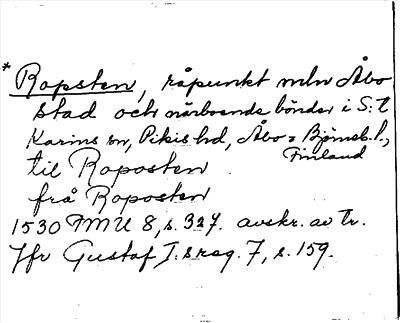 * Ropsten, råpunkt mln Åbo
stad och närboende bönder i S:t
Karins sn, Pikis hd, Åbo o Björneb. l.,
Finland
til Roposten
frå Roposten
1530 FMU 8, s. 327. avskr. av Tr.
Jfr Gustaf I:s reg. 7, s. 159.